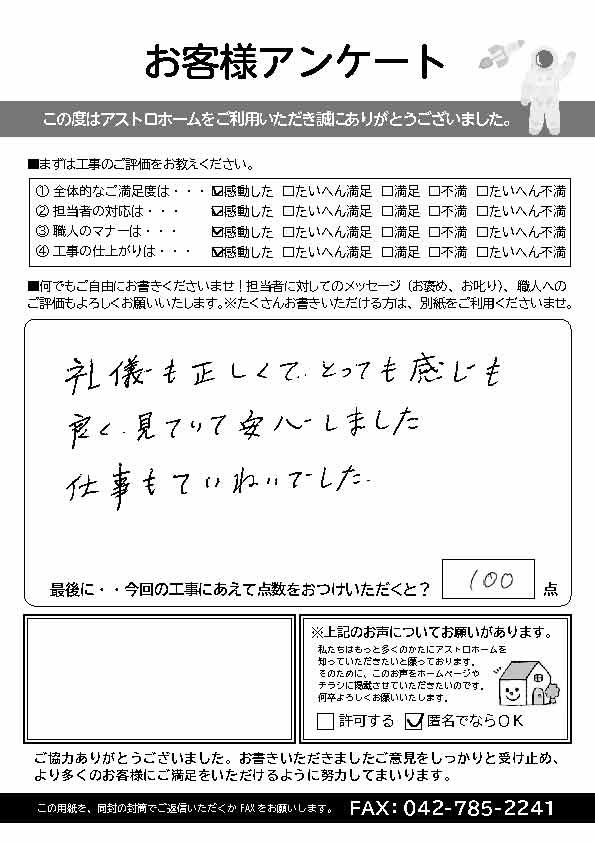 お客様アンケート
この度はアストロホームをご利用いただき誠にありがとうございました。
■まずは工事のご評価をお教えください。
① 全体的なご満足度は・・・ ☑感動した □たいへん満足 □満足 □不満 □たいへん不満
② 担当者の対応は・・・ ☑感動した □たいへん満足 □満足 □不満 □たいへん不満
③ 職人のマナーは・・・ ☑感動した □たいへん満足 □満足 □不満 □たいへん不満
④ 工事の仕上がりは・・・ ☑感動した □たいへん満足 □満足 □不満 □たいへん不満
■何でもご自由にお書きくださいませ!担当者に対してのメッセージ(お褒め、お叱り)、職人への
ご評価もよろしくお願いいたします。※たくさんお書きいただける方は、別紙をご利用くださいませ。
礼儀も正しくて、とっても感じも
良く、見ていて安心しました
仕事もていねいでした。
最後に・・今回の工事にあえて点数をおつけいただくと? 100 点
※上記のお声についてお願いがあります。
私たちはもっと多くのかたにアストロホームを
知っていただきたいと願っております。
そのために、このお声をホームページや
チラシに掲載させていただきたいのです。
何卒よろしくお願いいたします。
□許可する ☑匿名でならOK
ご協力ありがとうございました。お書きいただきましたご意見をしっかりと受け止め、
より多くのお客様にご満足をいただけるように努力してまいります。
この用紙を、同封の封筒でご返信いただくか FAX をお願いします。 FAX: 042-785-2241